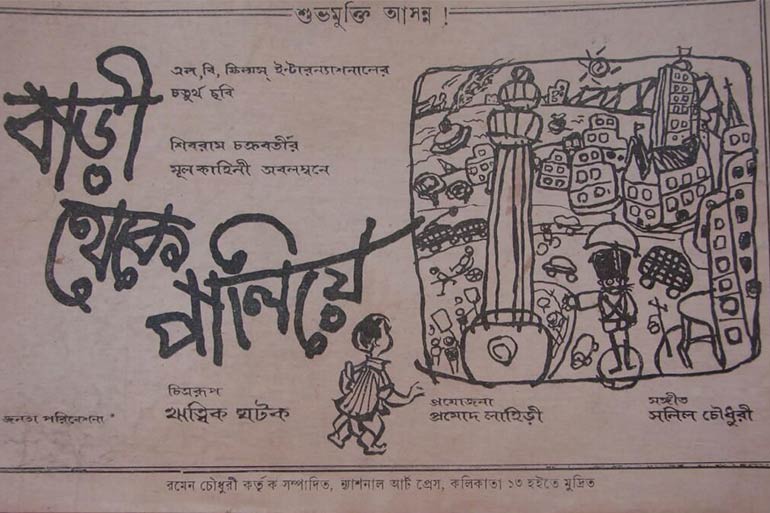 শুভমুক্তি আসন্ন !
এল, বি, ফিল্মস্ ইন্টারন্যাশনালের
চতুর্থ ছবি
শিবরাম চক্রবর্তীর
মূল কাহিনী অবলম্বনে
বাড়ী
থেকে
পালিয়ে
চিত্ররূপ
ঋত্বিক ঘটক
প্রযোজনা
প্রমোদ লাহিড়ী
সঙ্গীত
সলিল চৌধুরী
জনতা পরিবেশনা
রমেন চৌধুরী কর্তৃক সম্পাদিত, ন্যাশনাল আর্ট প্রেস, কলিকাতা ১৩ হইতে মুদ্রিত